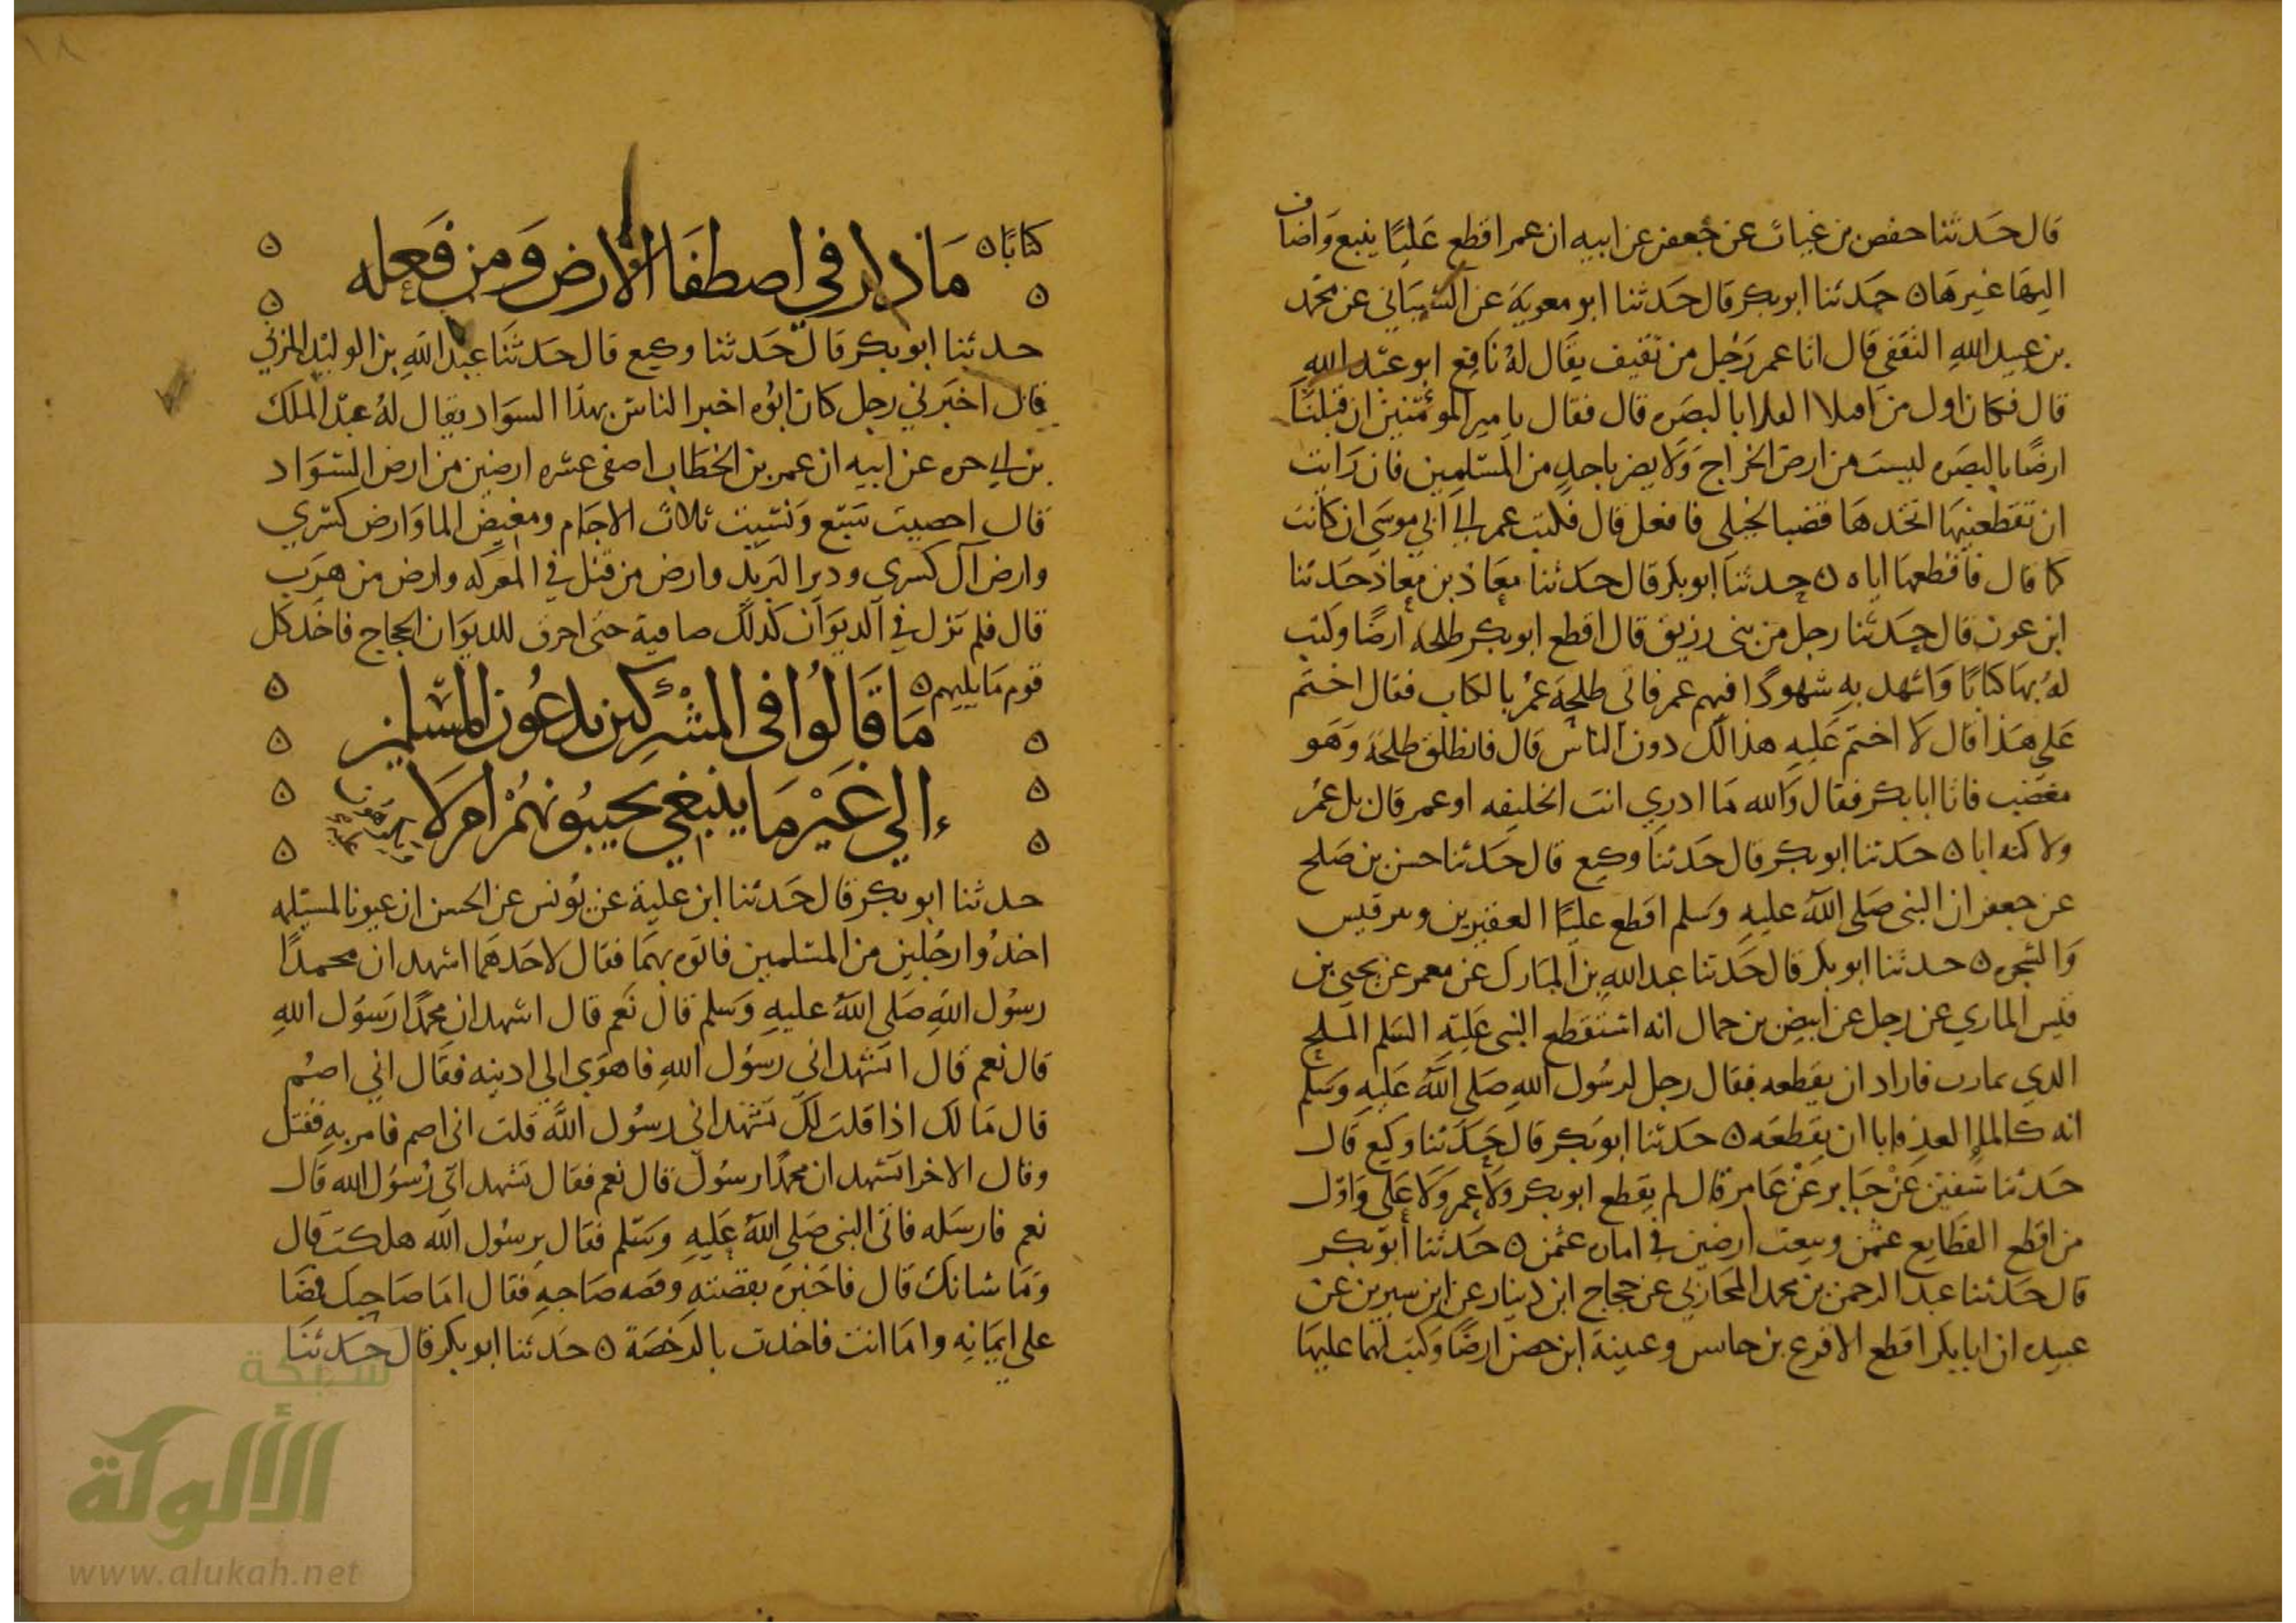 قال حدثنا حفص بن غياث عن جعفر عن ابيه ان عمر اقطع عليًا ينبع واضاف
اليها غيرها ه حدثنا ابو بكر قال حدثنا ابو معوية عن الشيباني عن محمد
بن عبيد الله الثقفي قال اتا عمر رجل من ثقيف يقال له نافع ابو عبد الله
قال فكان اول من افتلا الفلا بالبصره قال فقال يا مير المؤمنين ان قبلنا
ارضًا بالبصره ليست من ارض الخراج ولا يضر باحد من المسلمين فان رايت
ان تقطعنيها اتخذها قضبا لخيلي فافعل قال فكتب عمر الى ابي موسى ان كانت
كما قال فاقطعها اياه ه حدثنا ابو بكر قال حدثنا معاذ بن معاذ حدثنا
ابن عون قال حدثنا رجل من بني زريق قال اقطع ابو بكر طلحه ارضًا وكتب
له بها كتابًا واشهد به شهودًا فيهم عمر فاتى طلحة عمر بالكتاب فقال اختم
على هذا قال لا اختم عليه هذا لك دون الناس قال فانطلق طلحة وهو
مغضب فاتا ابا بكر فقال والله ما ادري انت الخليفه او عمر قال بل عمر
ولاكنه ابا ه حدثنا ابو بكر قال حدثنا وكيع قال حدثنا حسن بن صلح
عن جعفر ان النبى صلى الله عليه وسلم اقطع عليًا الفقيرين وبير قيس
والشجره ه حدثنا ابو بكر قال حدثنا عبد الله بن المبارك عن معمر عن يحيى بن
قيس الماربي عن رجل عن ابيض بن حمال انه استقطع النبى عليه السلم الملح
الدي بمارب فاراد ان يقطعه فقال رجل لرسول الله صلى الله عليه وسلم
انه كالما العد فابا ان يقطعه ه حدثنا ابو بكر قال حدثنا وكيع قال
حدثنا سفين عن جابر عن عامر قال لم يقطع ابو بكر ولا عمر ولا على واول
من اقطع القطايع عثمن وبيعت ارضين في اماره عثمن ه حدثنا ابو بكر
قال حدثنا عبد الرحمن بن محمد المحاربي عن حجاج ابن دينار عن ابن سيرين عن
عبيده ان ابا بكر اقطع الاقرع بن حابس وعيينة ابن حصن ارضًا وكتب لهما عليها
كتابًا ه ما ذكر في اصطفا الارض ومن فعله
حدثنا ابو بكر قال حدثنا وكيع قال حدثنا عبد الله بن الوليد المزني
قال اخبرني رجل كان ابوه اخبر الناس بهذا السواد يقال له عبد الملك
بن ابي حره عن ابيه ان عمر بن الخطاب اصفى عشره ارضين من ارض السواد
قال احصيت سبع ونسيت ثلاث الاجام ومغيض الما وارض كسرى
وارض آل كسرى ودير البريد وارض من قتل في المعركه وارض من هرب
قال فلم تزل في الديوان كذلك صافية حتى احرق للديوان الحجاج فاخذ كل
قوم ما يليهم ه ما قالوا في المشركين يدعون المسلمين
إلى غير ما ينبغي يجيبونهم ام لا
حدثنا ابو بكر قال حدثنا ابن علية عن يونس عن الحسن ان عيونا لمسيلمه
اخذوا رجلين من المسلمين فاتوه بهما فقال لاحدهما اشهد ان محمدًا
رسول الله صلى الله عليه وسلم قال نعم قال اشهد ان محمدًا رسول الله
قال نعم قال اتشهد اني رسول الله فاهوى الى ادنيه فقال اني اصم
قال ما لك اذا قلت لك تشهد اني رسول الله قلت اني اصم فامر به فقتل
وقال الاخر اتشهد ان محمدًا رسول قال نعم فقال تشهد اني رسول الله قال
نعم فارسله فاتى النبى صلى الله عليه وسلم فقال يرسول الله هلكت قال
وما شانك قال فاخبره بقصته وقصه صاحبه فقال اما صاحبك فمضا
على ايمانه واما انت فاخذت بالرخصة ه حدثنا ابو بكر قال حدثنا
شبكة
الألوكة
www.alukah.net